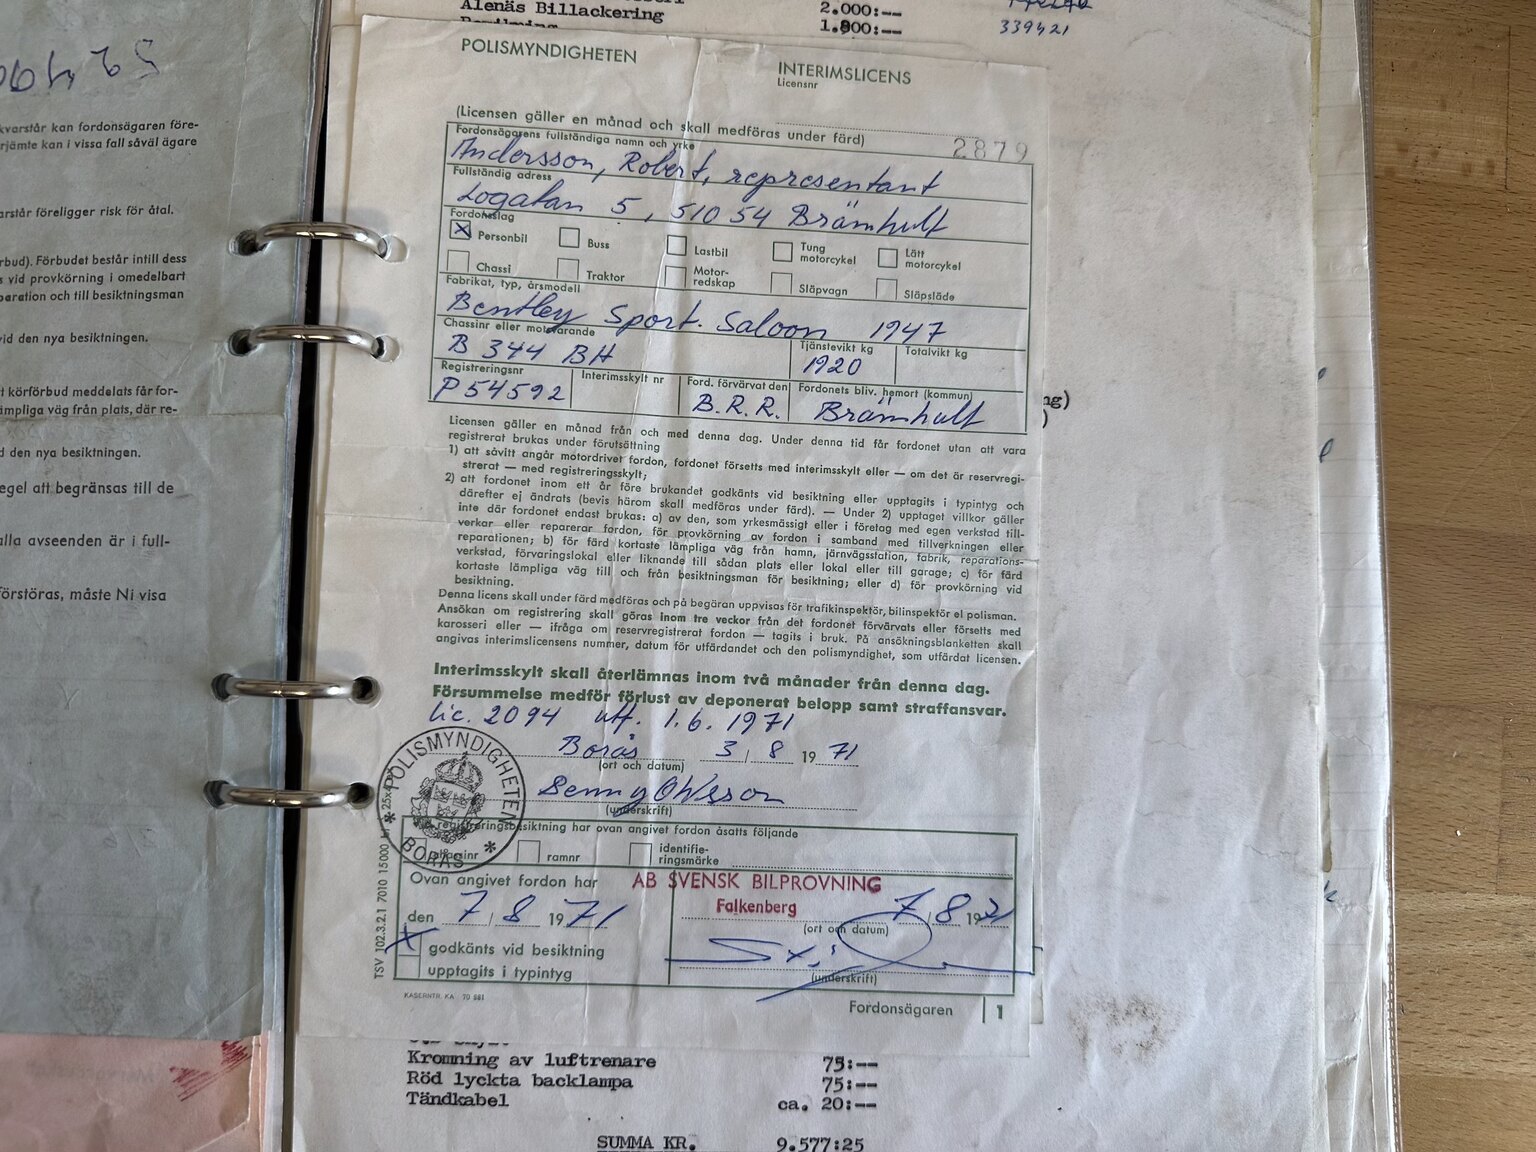 Alenäs Billackering 2.000:--
1.800:--
339421
kvarstår kan fordonsägaren före-
rjämte kan i vissa fall såväl ägare
arstår föreligger risk för åtal.
rbud). Förbudet består intill dess
s vid provkörning i omedelbart
paration och till besiktningsman
vid den nya besiktningen.
t körförbud meddelats får for-
ämpliga väg från plats, där re-
d den nya besiktningen.
egel att begränsas till de
alla avseenden är i full-
förstöras, måste Ni visa
POLISMYNDIGHETEN
INTERIMSLICENS
Licensnr
(Licensen gäller en månad och skall medföras under färd)
2879
Fordonsägarens fullständiga namn och yrke
Andersson, Robert, representant
Fullständig adress
Logatan 5, 510 54 Brämhult
Fordonsslag
x Personbil Buss Lastbil Tung motorcykel Lätt motorcykel
Chassi Traktor Motor-redskap Släpvagn Släpsläde
Fabrikat, typ, årsmodell
Bentley Sport. Saloon 1947
Chassinr eller motsvarande Tjänstevikt kg Totalvikt kg
B 344 BH 1920
Registreringsnr Interimsskylt nr Ford. förvärvat den Fordonets bliv. hemort (kommun)
P54592 B.R.R. Brämhult
Licensen gäller en månad från och med denna dag. Under denna tid får fordonet utan att vara
registrerat brukas under förutsättning
1) att såvitt angår motordrivet fordon, fordonet försetts med interimsskylt eller — om det är reservregi-
strerat — med registreringsskylt;
2) att fordonet inom ett år före brukandet godkänts vid besiktning eller upptagits i typintyg och
därefter ej ändrats (bevis härom skall medföras under färd). — Under 2) upptaget villkor gäller
inte där fordonet endast brukas: a) av den, som yrkesmässigt eller i företag med egen verkstad till-
verkar eller reparerar fordon, för provkörning av fordon i samband med tillverkningen eller
reparationen; b) för färd kortaste lämpliga väg från hamn, järnvägsstation, fabrik, reparations-
verkstad, förvaringslokal eller liknande till sådan plats eller lokal eller till garage; c) för färd
kortaste lämpliga väg till och från besiktningsman för besiktning; eller d) för provkörning vid
besiktning.
Denna licens skall under färd medföras och på begäran uppvisas för trafikinspektör, bilinspektör el polisman.
Ansökan om registrering skall göras inom tre veckor från det fordonet förvärvats eller försetts med
karosseri eller — ifråga om reservregistrerat fordon — tagits i bruk. På ansökningsblanketten skall
angivas interimslicensens nummer, datum för utfärdandet och den polismyndighet, som utfärdat licensen.
Interimsskylt skall återlämnas inom två månader från denna dag.
Försummelse medför förlust av deponerat belopp samt straffansvar.
lic. 2094 utf. 1.6. 1971
Borås 3/8 1971
(ort och datum)
Benny Ohlsson
(underskrift)
POLISMYNDIGHETEN
* BORÅS *
registreringsbesiktning har ovan angivet fordon åsatts följande
ramnr identifie-ringsmärke
Ovan angivet fordon har
den 7/8 1971
x godkänts vid besiktning
upptagits i typintyg
AB SVENSK BILPROVNING
Falkenberg 7/8 1971
(ort och datum)
(underskrift)
TSV 102.3.2.1 7010 15000
KASERNTR. KA 70 981
Fordonsägaren 1
Kromning av luftrenare 75:--
Röd lyckta backlampa 75:--
Tändkabel ca. 20:--
SUMMA KR. 9.577:25